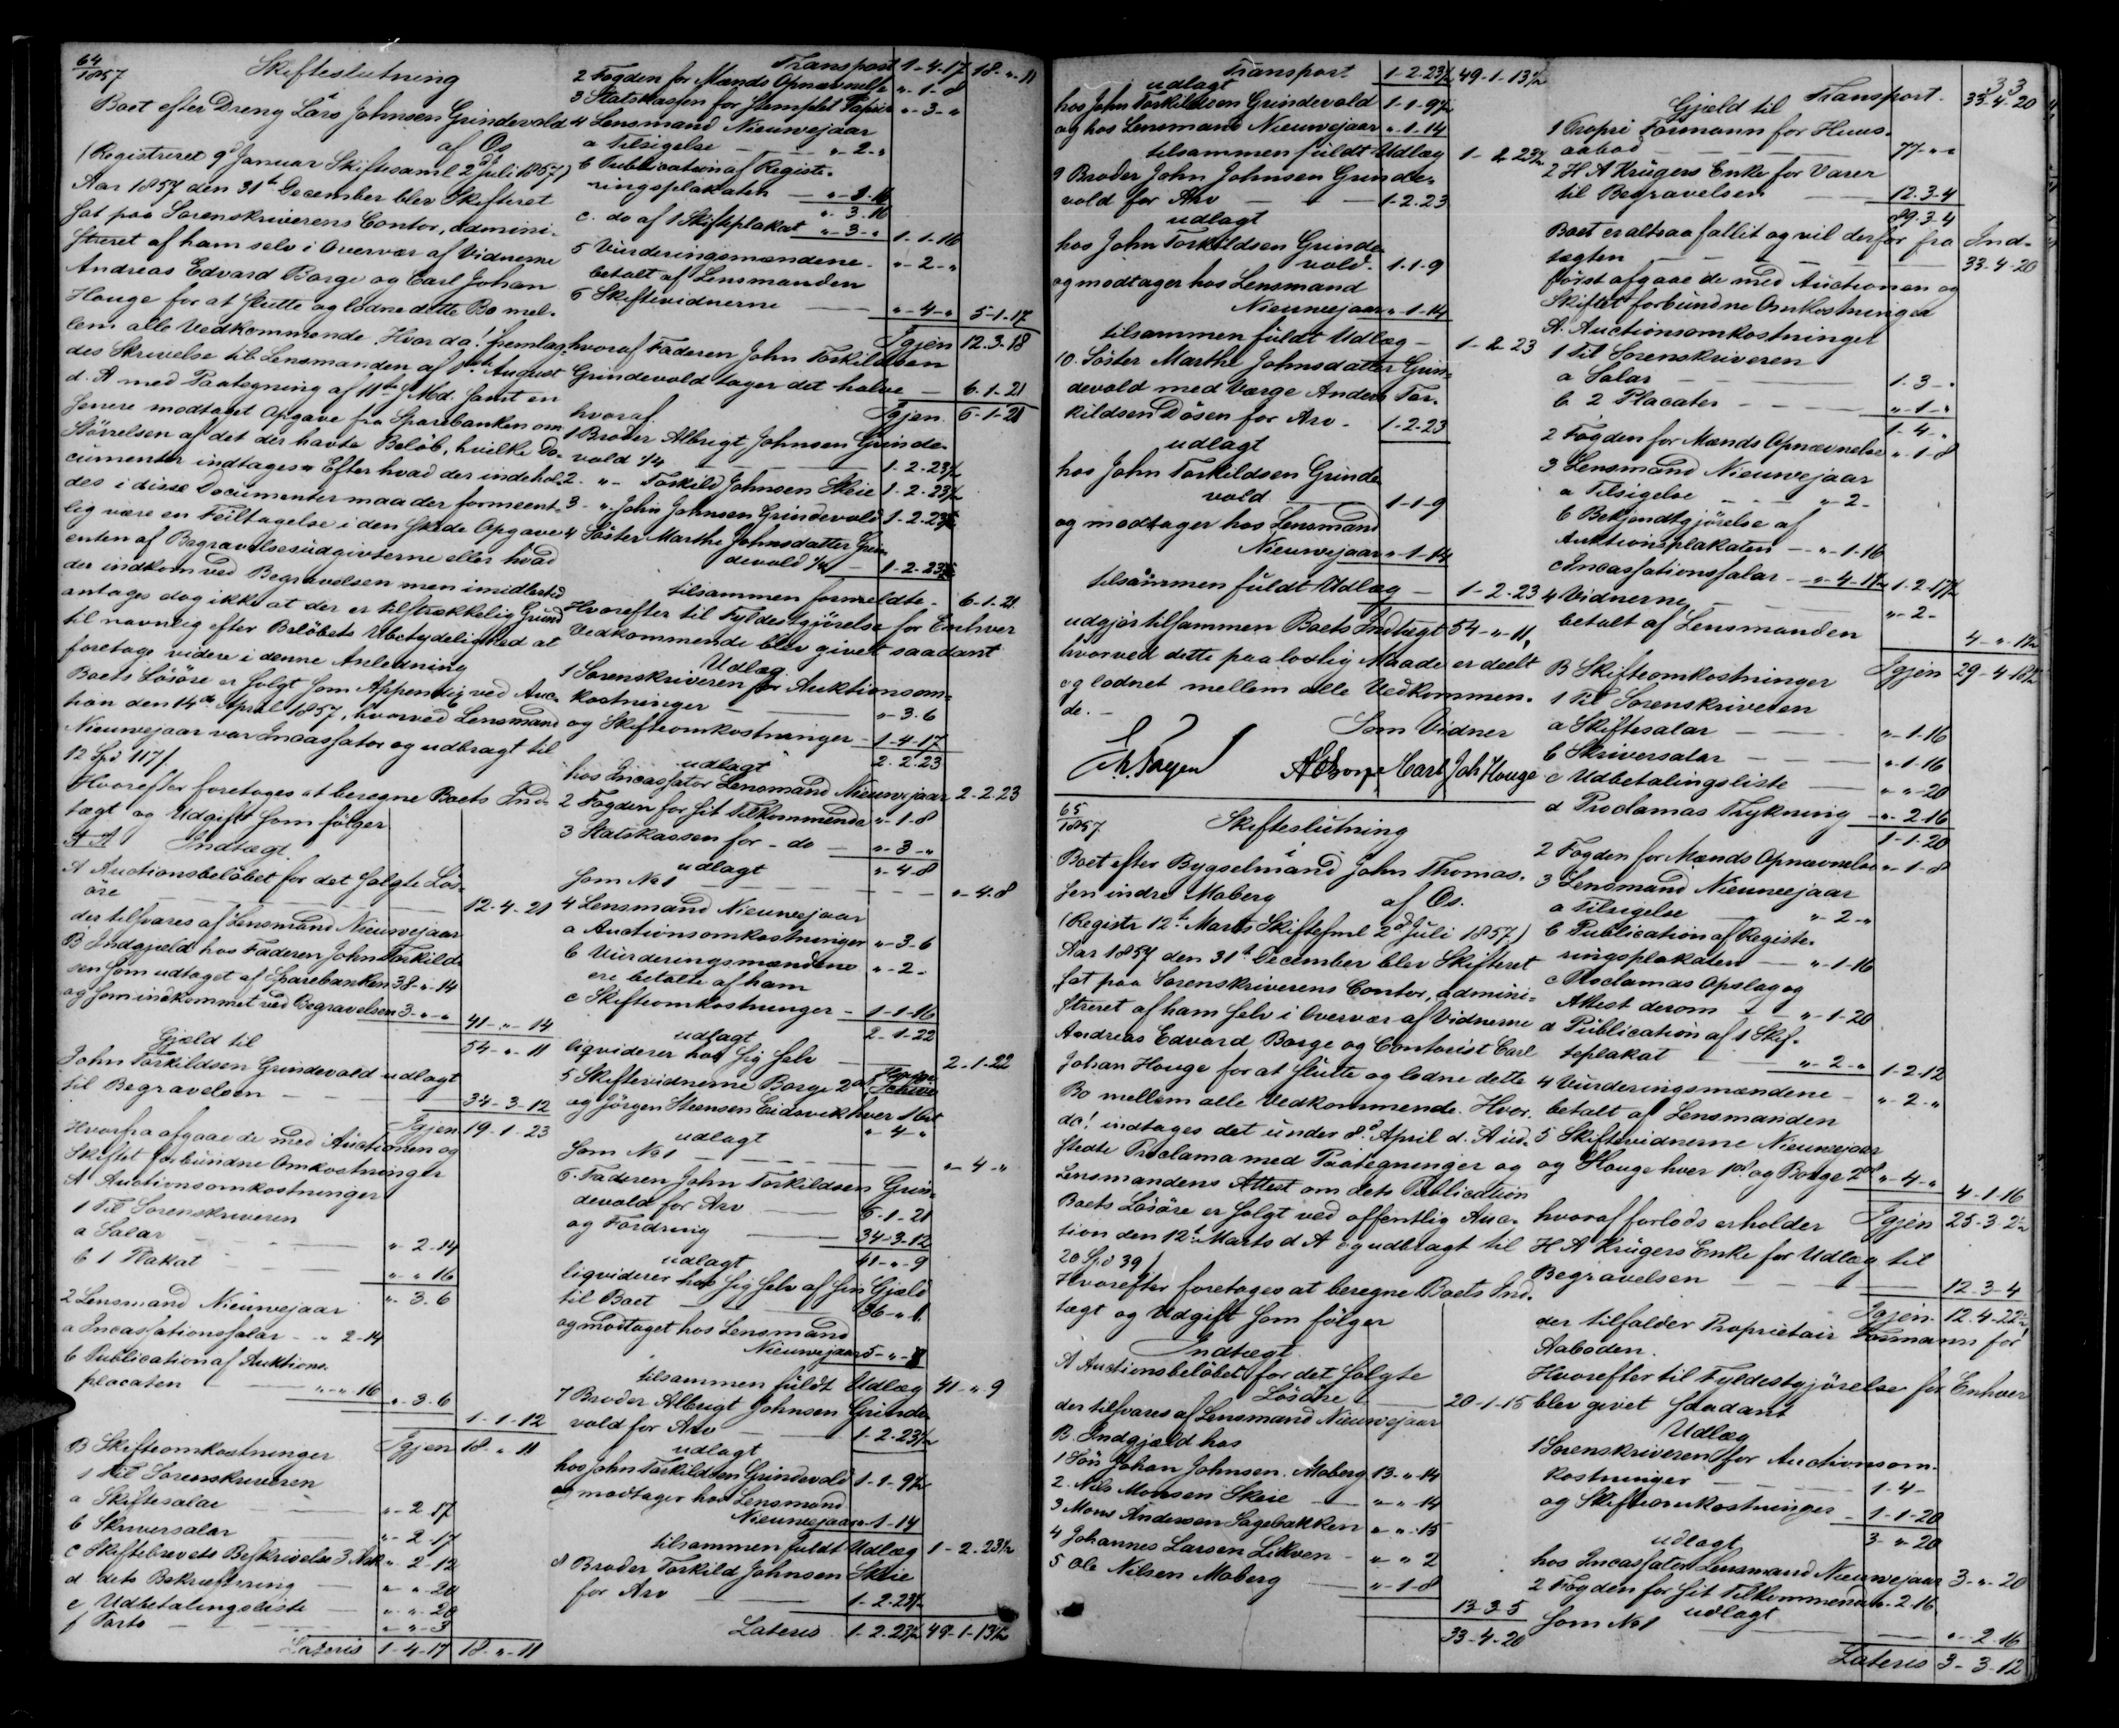 64
1857
Skifteslutning
i
Boet efter Dreng Lars Johnsen Grindevold
af Os
(Registreret 9d Januar Skiftesaml 2d Juli 1857)
Aar 1857 den 31te December blev Skifteret
sat paa Sorenskriverens Contor, admini-
streret af ham selv i Overvær af Vidnerne
Andreas Edvard Borge og Carl Johan
Houge for at slutte og lodne dette Bo mel-
lem alle Vedkommende. Hvor da! fremlag-
des Skrivelse til Lensmanden af August
d. A med Paategning af 11te s. Md. samt en
senere modtaget Opgave fra Sparebanken om
Störrelsen af det der havte Belöb, hvilke Do-
cumenter indtages. Efter hvad der indehol-
des i disse Documenter maa der formeent-
lig være en Feiltagelse i den skede Opgave
enten af Begravelsesudgivterne eller hvad
der indkom ved Begravelsen men imidlertid
antages dog ikke at der er tilstrækkelig Grund
til navnlig efter Belöbets Ubetydelighed at
foretage videre i denne Anledning
Boets Lösöre er solgt som Appendix ved Auc-
tion den 14de April 1857, hvorved Lensmand
Nieuwejaar var Incassator og udbragt til
12 Spd 117 s.
Hvorefter foretages at beregne Boets Ind-
tægt og Udgift som fölger
Indtægt.
A Auctionsbelöbet for det solgte Lös-
öre 12-4-21
der tilsvares af Lensmand Nieuwejaar
B Indgjæld hos Faderen John Torkild-
sen som udtaget af Sparebanken 38-"-14
og som indkommet ved Begravelsen 3-"-" 41-"-14
54-"-11
Gjæld til
John Torkildsen Grindevold udlagt
til Begravelsen 34-3-12
Igjen 19-1-23
Hvorfra afgaae de med Auctionen og
Skiftet forbundne Omkostninger
A Auctionsomkostninger
1 Til Sorenskriveren
a Salar "-2-14
b 1 Plakat "-"-16
"-3-6
2 Lensmand Nieuwejaar
a Incassationssalar "-2-14
b Publication af Auktions-
placaten "-"-16 "-3-6
1-1-12
B Skifteomkostninger Igjen 18-"-11
1 Til Sorenskriveren
a Skiftesalar "-2-17
b Skriversalar "-2-17
c Skiftebrevets Beskrivelse 3 Ark "-2-12
d dets Bekræftning "-"-20
e Udbetalingsliste "-"-20
f Porto "-"-3
Lateris 1-4-17 18-"-11
Transport 1-4-17 18-"-11
2 Fogden for Mænds Opnævnelse "-1-8
3 Statskassen for stemplet Papir "-3-"
4 Lensmand Nieuwejaar
a Tilsigelse "-2-"
b Publication af Registe-
ringsplakaten "-1-16
"-3-16
c. do af 1 Skifteplakat "-3-" 1-1-16
5 Vurderingsmændene "-2-"
betalt af Lensmanden
6 Skiftevidnerne "-4-" 5-1-17
Igjen 12-3-18
hvoraf Faderen John Torkildsen
Grindevold tager det halve 6-1-21
Igjen 6-1-21
hvoraf
1 Broder Albrigt Johnsen Grinde-
vold 1/4 1-2-23 1/4
2 "- Torkild Johnsen Skeie 1-2-23 1/4
3 "- John Johnsen Grindevold 1-2-23 1/4
4 Söster Marthe Johnsdatter Grin-
devold 1/4 1-2-23 1/4
tilsammen formeldte 6-1-21
Hvorefter til Fyldestgjörelse for Enhver
Vedkommende blev givet saadant
Udlæg
1 Sorenskriveren for Auktionsom-
kostninger "-3-6
og Skifteomkostninger 1-4-17
2-2-23
udlagt
hos Incassator Lensmand Nieuwejaar 2-2-23
2 Fogden for sit Tilkommende "-1-8
3 Statskassen for do "-3-"
"-4-8
udlagt
som No 1 "-4-8
4 Lensmand Nieuwejaar
a Auctionsomkostninger "-3-6
b Vurderingsmændene "-2-
ere betalte af ham
c Skifteomkostninger 1-1-16
2-1-22
udlagt
ligviderer hos sig selv 2-1-22
5 Skiftevidnerne Borge 2
og Jörgen Steensen Eidsvik hver 1 ort
"-4-"
udlagt
som No 1 "-4-"
6. Faderen John Torkildsen Grin-
devold for Arv 6-1-21
og Fordring 34-3-12
41-"-9
udlagt
ligviderer hos sig selv af sin Gjæld
til Boet 36-"-1
og modtaget hos Lensmand
Nieuwejaar 5-"-8
tilsammen fuldt Udlæg 41-"-9
7 Broder Albrigt Johnsen Grinde-
vold for Arv 1-2-23 1/2
udlagt
hos John Torkildsen Grindevold 1-1-9 1/2
og modtager hos Lensmand
Nieuwejaar "-1-14
tilsammen fuldt Udlæg 1-2-23 1/2
8 Broder Torkild Johnsen Skeie
for Arv 1-2-23 1/2
Lateris 1-2-23 1/2 49-1-13 1/2
Transport 1-2-23 1/2 49-1-13 1/2
udlagt
hos John Torkildsen Grindevold 1-1-9 1/2
og hos Lensmand Nieuwejaar "-1-14
tilsammen fuldt Udlæg 1-2-23 1/2
9 Broder John Johnsen Grinde-
vold for Arv 1-2-23
udlagt
hos John Torkildsen Grinde-
vold 1-1-9
og modtager hos Lensmand
Nieuwejaar "-1-14
tilsammen fuldt Udlæg 1-2-23
10. Söster Marthe Johnsdatter Grin-
devold med Værge Anders Tor-
kildsen Dösen for Arv 1-2-23
udlagt
hos John Torkildsen Grinde-
vold 1-1-9
og modtager hos Lensmand
Nieuwejaar "-1-14
tilsammen fuldt Udlæg 1-2-23
udgjör tilsammen Boets Indtægt 54-"-11,
hvorved dette paa lovlig Maade er deelt
og lodnet mellem alle Vedkommen-
de.
Som Vidner
AEBorge Carl Joh Houge
65
1857
Skifteslutning
i
Boet efter Bygselmand John Thomas-
sen indre Moberg af Os.
(Registr 12te Marts Skiftesml 2d Juli 1857)
Aar 1857 den 31te December blev Skifteret
sat paa Sorenskriverens Contor, admini-
streret af ham selv i Overvær af Vidnerne
Andreas Edvard Borge og Contorist Carl
Johan Houge for at slutte og lodne dette
Bo mellem alle Vedkommende. Hvor
da! indtages det under 8d April d. A ud-
stedte Proclama med Paategninger og
Lensmandens Attest om dets Publication
Boets Lösöre er solgt ved offentlig Auc-
tion den 12te Marts d A og udbragt til
20 Spd 39 s
Hvorefter foretages at beregne Boets Ind-
tægt og Udgift som fölger
Indtægt.
A Auctionsbelöbet for det solgte
Lösöre 20-1-15
der tilsvares af Lensmand Nieuwejaar
B. Indgjæld hos
1 Sön Johan Johnsen Moberg 13-"-14
2. Nils Monsen Skeie "-"-14
3 Mons Andersen Sagebakken "-"-15
4 Johannes Larsen Likven "-"-2
5 Ole Nilsen Moberg "-1-8
13-3-5
33-4-20
Transport 33-4-20
Gjæld til
1 Propri Formann for Huus-
aabod 77-"-"
2 H A Krügers Enke for Varer
til Begravelsen 12-3-4
89-3-4
Boet er altsaa fallit og vil derfor fra Ind-
tægten 33-4-20
först afgaae de med Auctionen og
Skiftet forbundne Omkostninger
A. Auctionsomkostninger
1 Til Sorenskriveren
a Salar 1-3-"
b 2 Placater "-1-"
1-4-"
2 Fogden for Mænds Opnævnelse "-1-8
3 Lensmand Nieuwejaar
a Tilsigelse "-2-
b Bekjendtgjörelse af
Auktionsplakaten "-1-16
c Incassationssalar "-4-1 1/2 1-2-17 1/2
4 Vidnerne "-2-
betalt af Lensmanden
4-"-1 1/2
Igjen 29-4-18 1/2
B Skifteomkostninger
1 Til Sorenskriveren
a Skiftesalar "-1-16
b Skriversalar "-1-16
c Udbetalingsliste "-"-20
d Proclamas Trykning "-2-16
1-1-20
2 Fogden for Mænds Opnævnelse "-1-8
3 Lensmand Nieuwejaar
a Tilsigelse "-2-"
b Publication af Registe-
ringsplakaten "-1-16
c Proclamas Opslag og
Attest derom "-1-20
d Publication af 1 Skif-
teplakat "-2-" 1-2-12
4 Vurderingsmændene "-2-"
betalt af Lensmanden
5 Skiftevidnerne Nieuwejaar
og Houge hver 1 ort og Borge 2 ort "-4-"
4-1-16
Igjen 25-3-2 1/2
hvoraf forlods erholder
H A Krügers Enke for Udlæg til
Begravelsen 12-3-4
Igjen 12-4-22 1/2
der tilfalder Proprietair Formann for
Aaboden.
Hvorefter til Fyldestgjörelse for Enhver
blev givet saadant
Udlæg
1 Sorenskriveren for Auctionsom-
kostninger 1-4-
og Skifteomkostninger 1-1-20
3-"-20
udlagt
hos Incassator Lensmand Nieuwejaar 3-"-20
2 Fogden for sit Tilkommende "-2-16
udlagt
som No 1 "-2-16
Lateris 3-3-12